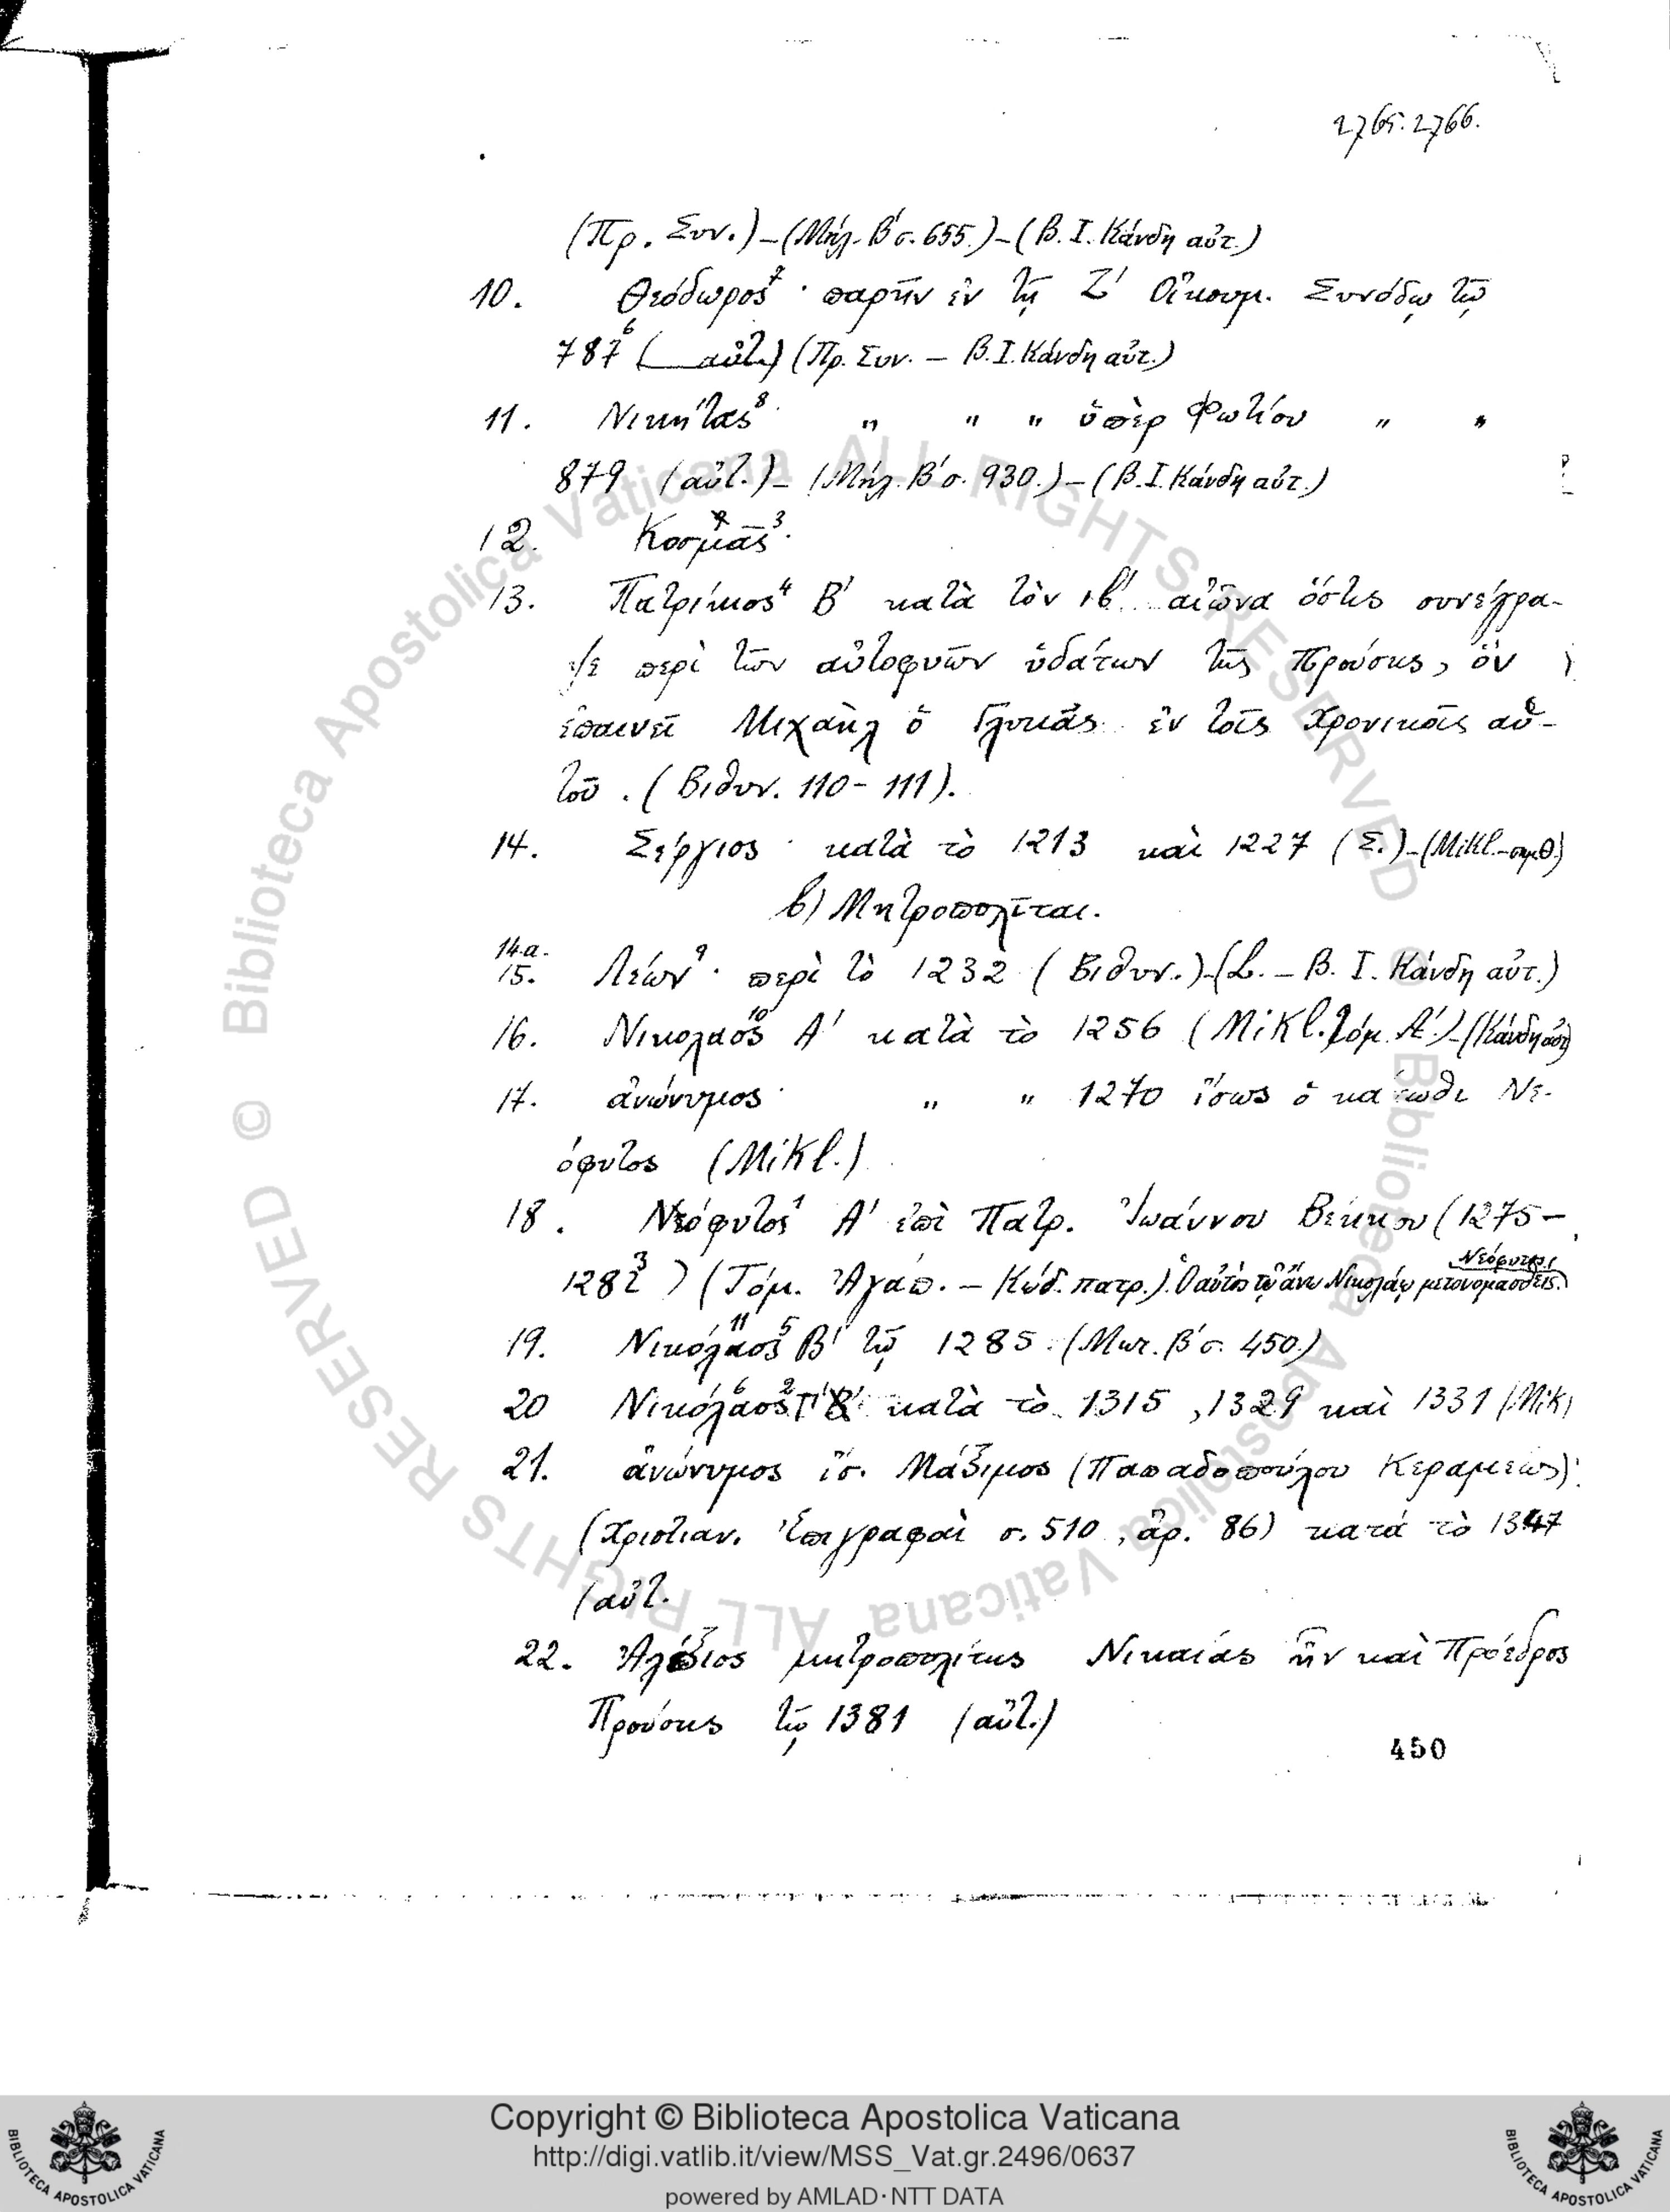 2765. 2766.
(Πρ. Συν.) – (Μήλ. Β΄ σ. 655.) – (Β. Ι. Κάνδη αὐτ.)
10. Θεόδωρος⁷ · παρῆν ἐν τῇ Ζ΄ Οἰκουμ. Συνόδῳ τῷ
787⁶ (αὐτ.) (Πρ. Συν. – Β. Ι. Κάνδη αὐτ.)
11. Νικήτας⁸ · „ „ „ ὑπὲρ Φωτίου „ „
879 (αὐτ.) – (Μήλ. Β΄ σ. 930.) – (Β. Ι. Κάνδη αὐτ.)
12. Κοσμᾶς³ ·
13. Πατρίκιος⁴ Β΄ κατὰ τὸν ιβ΄ αἰῶνα ὅστις συνέγρα-
ψε περὶ τῶν αὐτοφυῶν ὑδάτων τῆς Προύσης, ὃν
ἐπαινεῖ Μιχαὴλ ὁ Γλυκᾶς ἐν τοῖς Χρονικοῖς αὐ-
τοῦ. (Βιθυν. 110 – 111).
14. Σέργιος · κατὰ τὸ 1213 καὶ 1227 (Σ.) – (Mikl.
β) Μητροπολῖται.
14.a.
15. Λέων⁹ · περὶ τὸ 1232 (Βιθυν.) – (L. – Β. Ι. Κάνδη αὐτ.)
16. Νικόλαος¹⁰ Α΄ κατὰ τὸ 1256 (Mikl. Τόμ. Α΄.) – (Κάνδη αὐτ)
17. ἀνώνυμος · „ „ 1270 ἴσως ὁ κάτωθι Νε-
όφυτος (Mikl.)
18. Νεόφυτος¹ Α΄ ἐπὶ Πατρ. Ἰωάννου Βέκκου (1275 –
1282³) (Τόμ. Ἀγάπ. – Κώδ. πατρ.). Ὁ αὐτὸς τῷ ἄνω Νικολάῳ μετονομασθεὶς Νεόφυτος.)
19. Νικόλαος¹¹ ⁵ Β΄ τῷ 1285. (Μωτ. β΄ σ. 450.)
20 Νικόλαος⁶ ² Γ΄ κατὰ τὸ 1315, 1329 καὶ 1331 (Mik)
21. ἀνώνυμος ἴσ. Μάξιμος (Παπαδοπούλου Κεραμέως)
(Χριστιαν. Ἐπιγραφαὶ σ. 510, ἀρ. 86) κατὰ τὸ 1347
(αὐτ.
22. Ἀλέξιος μητροπολίτης Νικαίας ἦν καὶ Πρόεδρος
Προύσης τῷ 1381 (αὐτ.)
450
© Biblioteca Apostolica Vaticana ALL RIGHTS RESERVED © Biblioteca Apostolica Vaticana ALL RIGHTS RESERVED
Copyright © Biblioteca Apostolica Vaticana
http://digi.vatlib.it/view/MSS_Vat.gr.2496/0637
powered by AMLAD·NTT DATA
BIBLIOTECA APOSTOLICA VATICANA
BIBLIOTECA APOSTOLICA VATICANA